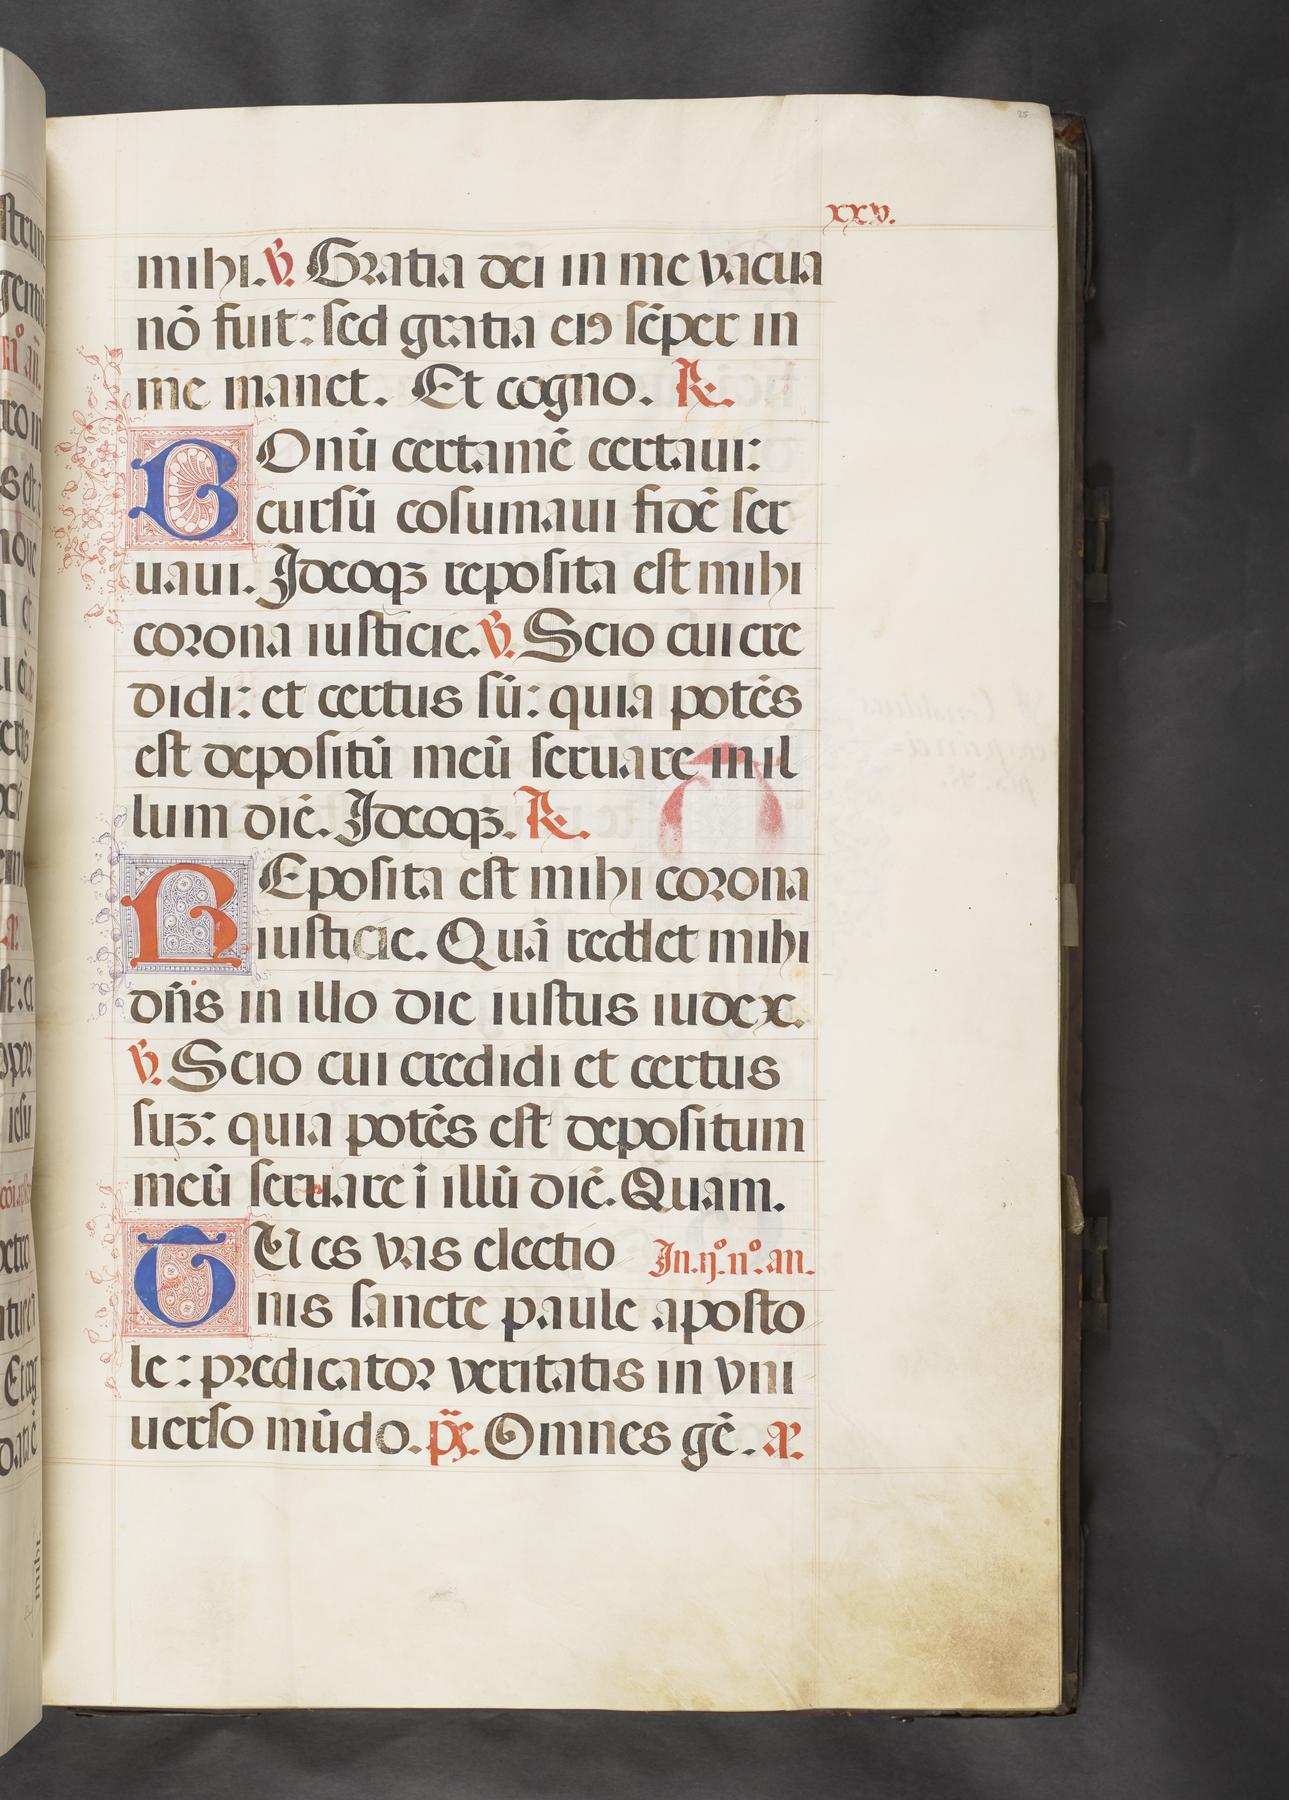 25
xxv.
mihi. ℣. Gratia dei in me vacua
nō fuit: sed gratia eiꝰ sēper in
me manet. Et cogno. ℟.
BOnū certamē certaui:
cursū cosumaui fidē ser
uaui. Ideoqꝫ reposita est mihi
corona iusticie. ℣. Scio cui cre
didi: et certus sū: quia potēs
est depositū meū seruare in il
lum diē. Ideoqꝫ. ℟.
REposita est mihi corona
iusticie. Quā reddet mihi
dn̄s in illo die iustus iudex.
℣. Scio cui credidi et certus
suꝫ: quia potēs est depositum
meū seruare ī illū diē. Quam.
TU es vas electio In.ij.º n.º an.
nis sancte paule aposto
le: predicator veritatis in vni
uerso mūdo. p̄s. Omnes gē. a.